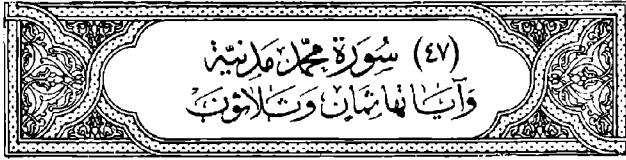 (٤٧) سُورَة مُحَمَّد مَدَنِيَّة
وَآيَاتُهَا ثَمَانٌ وَثَلَاثُونَ